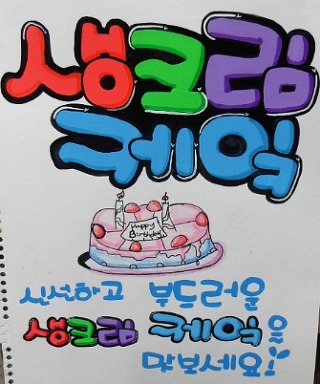 생크림
케익
Happy
Birthday
신선하고 부드러운
생크림 케익을
맛보세요!